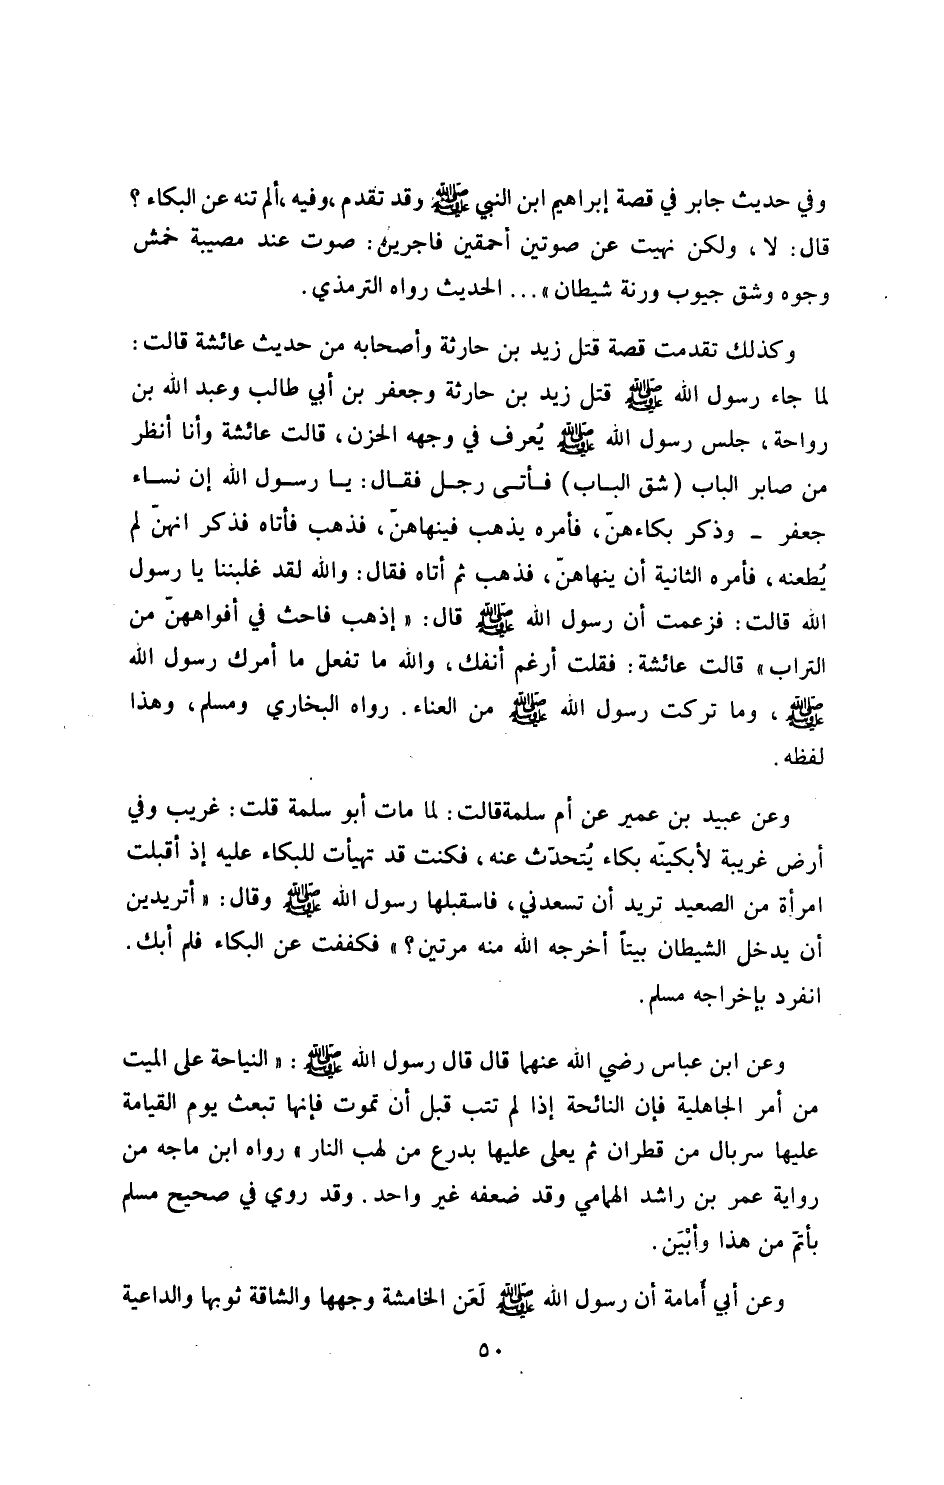 وفي حديث جابر في قصة إبراهيم ابن النبي ﷺ وقد تقدم ،وفيه ،ألم تنه عن البكاء ؟
قال: لا ، ولكن نهيت عن صوتين أحمقين فاجرين: صوت عند مصيبة خمش
وجوه وشق جيوب ورنة شيطان »... الحديث رواه الترمذي.
وكذلك تقدمت قصة قتل زيد بن حارثة وأصحابه من حديث عائشة قالت:
لما جاء رسول الله ﷺ قتل زيد بن حارثة وجعفر بن أبي طالب وعبد الله بن
رواحة، جلس رسول الله ﷺ يُعرف في وجهه الحزن، قالت عائشة وأنا أنظر
من صابر الباب (شق الباب) فأتى رجل فقال: يا رسول الله إن نساء
جعفر - وذكر بكاءهنّ، فأمره يذهب فينهاهنّ، فذهب فأتاه فذكر انهنّ لم
يُطعنه، فأمره الثانية أن ينهاهنّ، فذهب ثم أتاه فقال: والله لقد غلبننا يا رسول
الله قالت: فزعمت أن رسول الله ﷺ قال: « إذهب فاحث في أفواههنّ من
التراب» قالت عائشة: فقلت أرغم أنفك، والله ما تفعل ما أمرك رسول الله
ﷺ ، وما تركت رسول الله ﷺ من العناء. رواه البخاري ومسلم، وهذا
لفظه.
وعن عبيد بن عمير عن أم سلمةقالت: لما مات أبو سلمة قلت: غريب وفي
أرض غريبة لأبكينّه بكاء يُتحدّث عنه، فكنت قد تهيأت للبكاء عليه إذ أقبلت
امرأة من الصعيد تريد أن تسعدني، فاسقبلها رسول الله ﷺ وقال: « أتريدين
أن يدخل الشيطان بيتاً أخرجه الله منه مرتين؟» فكففت عن البكاء فلم أبك.
انفرد بإخراجه مسلم.
وعن ابن عباس رضي الله عنهما قال قال رسول الله ﷺ : « النياحة على الميت
من أمر الجاهلية فإن النائحة إذا لم تتب قبل أن تموت فإنها تبعث يوم القيامة
عليها سربال من قطران ثم يعلى عليها بدرع من لهب النار » رواه ابن ماجه من
رواية عمر بن راشد الهامي وقد ضعفه غير واحد. وقد روي في صحيح مسلم
بأتمّ من هذا وأبْيَن.
وعن أبي أُمامة أن رسول الله ﷺ لَعَن الخامشة وجهها والشاقة ثوبها والداعية
٥٠